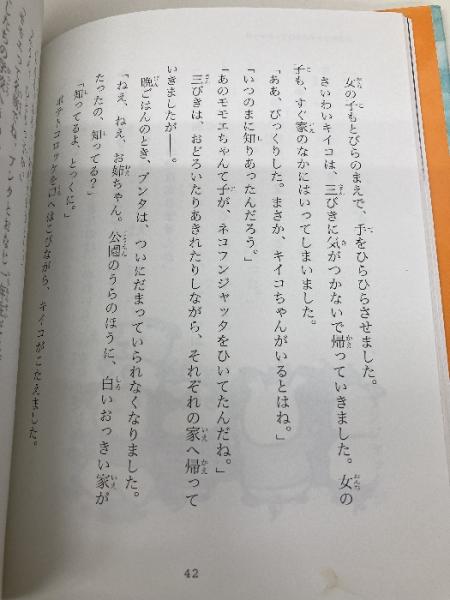 女の子もとびらのまえで、手をひらひらさせました。
さいわいキイコは、三びきに気がつかないで帰っていきました。女の
子も、すぐ家のなかにはいってしまいました。
「ああ、びっくりした。まさか、キイコちゃんがいるとはね。」
「いつのまに知りあったんだろう。」
「あのモモエちゃんて子が、ネコフンジャッタをひいてたんだね。」
三びきは、おどろいたりあきれたりしながら、それぞれの家へ帰って
いきましたが——。
晩ごはんのとき、ブンタは、ついにだまっていられなくなりました。
「ねえ、ねえ、お姉ちゃん。公園のうらのほうに、白いおっきい家が
たったの、知ってる?」
「知ってるよ、とっくに。」
ポテトコロッケを口へはこびながら、キイコがこたえました。
42